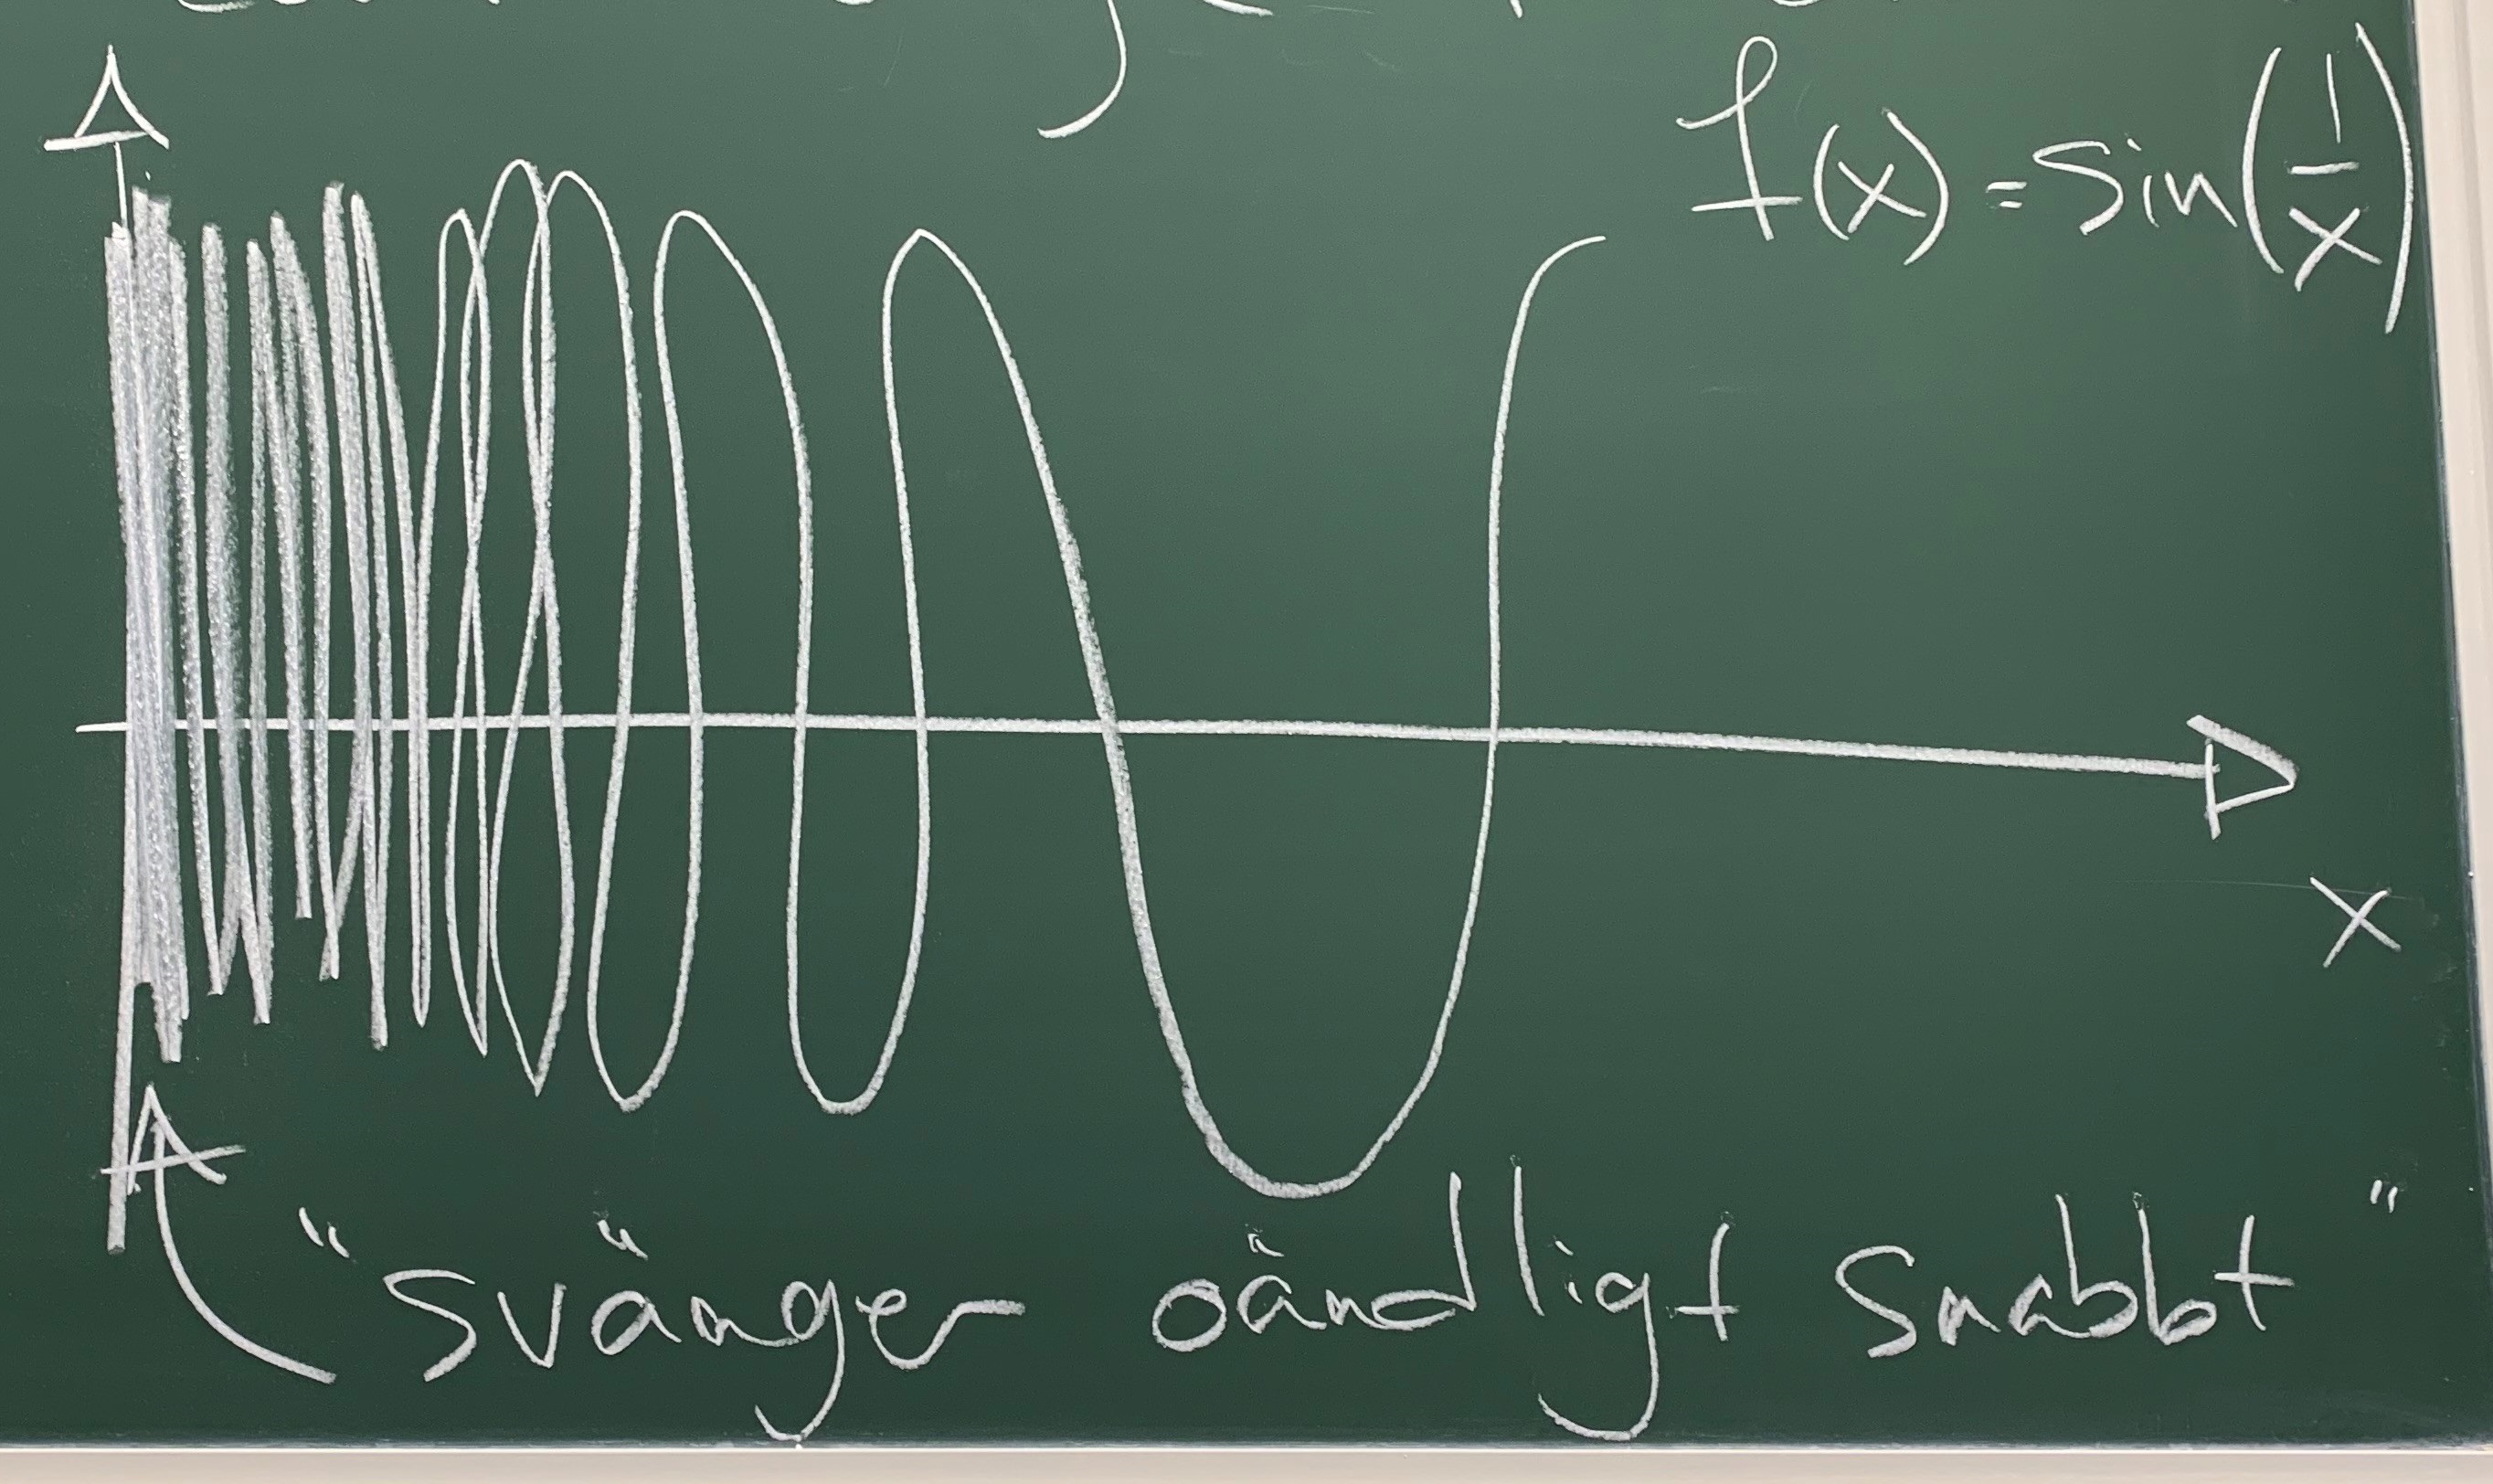 f(x) = sin(1/x)
x
"svänger oändligt snabbt"